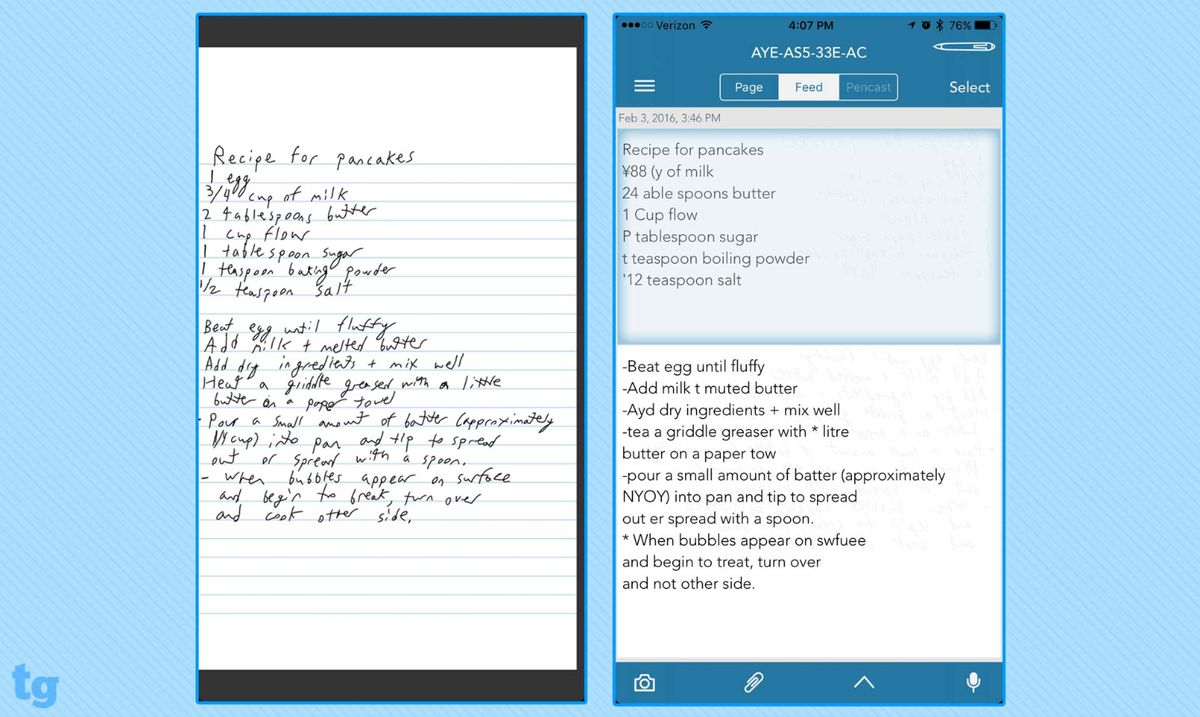 Recipe for pancakes
1 egg
3/4 cup of milk
2 tablespoons butter
1 cup flour
1 tablespoon sugar
1 teaspoon baking powder
1/2 teaspoon salt
Beat egg until fluffy
Add milk + melted butter
Add dry ingredients + mix well
Heat a griddle greased with a little
butter on a paper towel
- Pour a small amount of batter (approximately
1/4 cup) into pan and tip to spread
out or spread with a spoon.
- when bubbles appear on surface
and begin to break, turn over
and cook other side.
tg
Verizon 4:07 PM 76%
AYE-AS5-33E-AC
Page Feed Pencast Select
Feb 3, 2016, 3:46 PM
Recipe for pancakes
¥88 (y of milk
24 able spoons butter
1 Cup flow
P tablespoon sugar
t teaspoon boiling powder
'12 teaspoon salt
-Beat egg until fluffy
-Add milk t muted butter
-Ayd dry ingredients + mix well
-tea a griddle greaser with * litre
butter on a paper tow
-pour a small amount of batter (approximately
NYOY) into pan and tip to spread
out er spread with a spoon.
* When bubbles appear on swfuee
and begin to treat, turn over
and not other side.